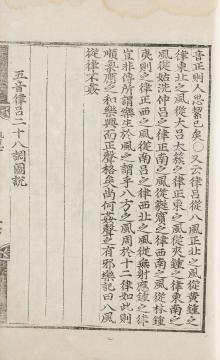 音正則人思絜中矣○又云律呂從八風正北之風從黃鍾之
律東北之風從大呂太簇之律正東之風從夾鍾之律東南之
風從姑洗仲呂之律正南之風從蕤賓之律西南之風從林鍾
夷則之律正西之風從南呂之律西北之風從無射應鍾之律
豈非傳所謂樂生於風之謂乎八方之風周於十二律如此則
順氣應之和樂興而正聲格矣尚何姦聲之有邪樂記曰八風
從律不姦
五音律呂二十八調圖說